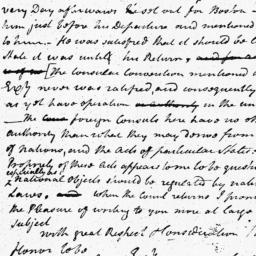 very Day afterwards he set out for Boston
him just before his Departure and mentioned
to him. He was satisfied that it should be
State it was until his Return,
The Consular Convention mentioned
never was ratified, and consequently
as yet have operation in the
The foreign Consuls here have no
authority than what they may derive from
of nations, and the Acts of particular States.
Propriety of those Acts appears to me to be quest
especially as
national Objects should be regulated by nat
Laws. when the Court returns I prom
the Pleasure of writing to you more at large
Subject
with great Respect
Honor to be